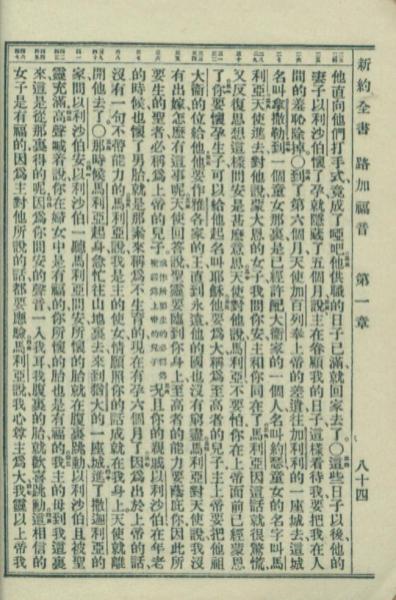 新約全書 路加福音 第一章 八十四
他直向他們打手式竟成了啞吧他供職的日子已滿就回家去了○這些日子以後他的
妻子以利沙伯懷了孕就隱藏了五個月說主在眷顧我的日子這樣看待我要把我在人
間的羞恥除掉○到了第六個月天使加百列奉上帝的差遣往加利利的一座城去這城
名叫拿撒勒到一個童女那裏是已經許配大衞家的一個人名叫約瑟童女的名字叫馬
利亞天使進去對他說蒙大恩的女子我問你安主和你同在了馬利亞因這話就很驚慌
又反復思想這樣問安是甚麼意思天使對他說馬利亞不要怕你在上帝面前已經蒙恩
了你要懷孕生子可以給他起名叫耶穌他要爲大稱爲至高者的兒子主上帝要把他祖
大衞的位給他他要作雅各家的王直到永遠他的國也沒有窮盡馬利亞對天使說我沒
有出嫁怎麼有這事呢天使回答說聖靈要臨到你身上至高者的能力要蔭庇你因此所
要生的聖者必稱爲上帝的兒子 況且你的親戚以利沙伯在年老
的時候也懷了男胎就是那素來稱爲不生育的現在有孕六個月了因爲出於上帝的話
沒有一句不帶能力的馬利亞說我是主的使女情願照你的話成就在我身上天使就離
開他去了○那時候馬利亞起身急忙往山地裏去來到猶大的一座城進了撒迦利亞的
家問以利沙伯安以利沙伯一聽馬利亞問安所懷的胎就在腹裏跳動以利沙伯且被聖
靈充滿高聲喊着說你在婦女中是有福的你所懷的胎也是有福的我主的母到我這裏
來這是從那裏得的呢因爲你問安的聲音一入我耳我腹裏的胎就歡喜跳動這相信的
女子是有福的因爲主對他所說的話都要應驗馬利亞說我心尊主爲大我靈以上帝我